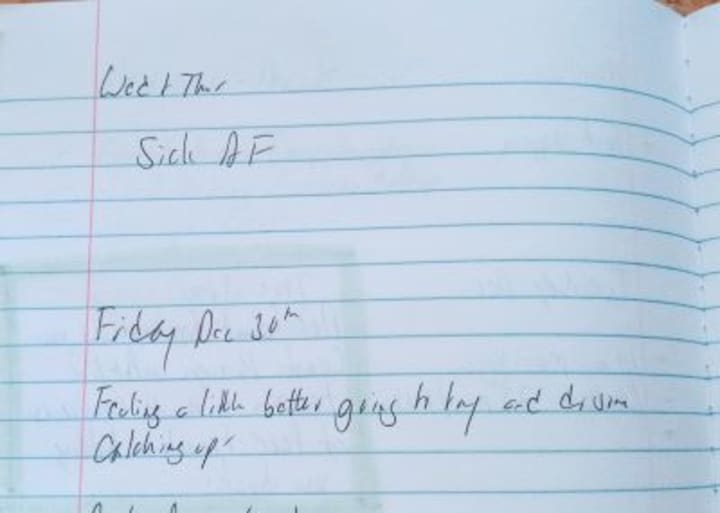 Wed & Thur
Sick AF
Friday Dec 30th
Feeling a little better going to try and do some
Catching up